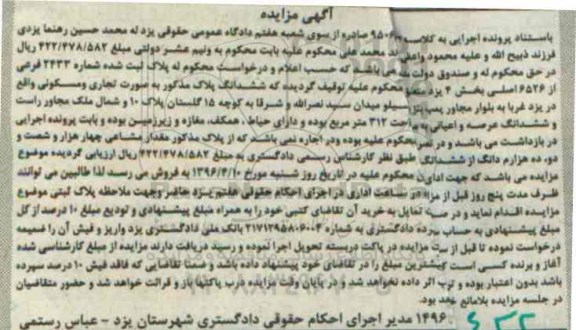 آگهی مزایده
باستناد پرونده اجرایی به کلاسه صادره از سوی شعبه هفتم دادگاه عمومی حقوقی یزد له محمد حسین رهنما یزدی
فرزند ذبیح الله و علیه محمود واعظی محمد علی محکوم علیه بابت محکوم به ونیم عشر دولتی مبلغ ۴۲۲/۴۷۸/۵۸۲ ریال
در حق محکوم له و صندوق دولت می باشد که حسب اعلام و درخواست محکوم له پلاک ثبت شده شماره ۲۴۳۳ فرعی
از ۶۵۲۶ اصلی بخش ۴ یزد متعلق محکوم علیه توقیف گردیده که ششدانگ پلاک مذکور به صورت تجاری ومسکونی واقع
در یزد غربا به بلوار مجاور پمپ بنزین سیلو میدان سید نصرالله و شرقا به کوچه ۱۵ گلستان پلاک ۱۰ و شمال ملک مجاور راست
و ششدانگ عرصه و اعیانی به مساحت ۳۱۲ متر مربع بوده و دارای حیاط ، همکف، مغازه و زیرزمین بوده و بابت پرونده اجرایی
در بازداشت می باشد و در تصرف محکوم علیه بوده ودر اجاره نمی باشد که از پلاک مذکور مقدار مشاعی چهار هزار و شصت و
دو، ده هزارم دانگ از ششدانگ طبق نظر کارشناس رسمی دادگستری به مبلغ ۴۲۲/۴۷۸/۵۸۲ ریال ارزیابی گردیده موضوع
مزایده می باشد که جهت ادای محکوم علیه در تاریخ روز شنبه مورخ ۱۳۹۶/۳/۱۰ به فروش می رسد لذا طالبین می توانند
ظرف مدت پنج روز قبل از مزایده در ساعت اداری در اجرای احکام حقوقی هفتم یزد حاضر وجهت ملاحظه پلاک ثبتی موضوع
مزایده اقدام نماید و در صورت تمایل به خرید آن تقاضای کتبی خود را به همراه مبلغ پیشنهادی و تودیع مبلغ ۱۰ درصد از کل
مبلغ پیشنهادی به حساب سپرده دادگستری به شماره ۲۱۷۱۲۹۵۸۰۶۰۰۴ بانک ملی دادگستری یزد واریز و فیش آن را ضمیمه
درخواست نموده تا قبل از مزایده در پاکت دربسته تحویل اجرا نموده و رسید دریافت دارند مزایده از مبلغ کارشناسی شده
آغاز و برنده کسی است که بیشترین مبلغ را در تقاضای خود پیشنهاد داده باشد و ضمنا تقاضایی که فاقد فیش ۱۰ درصد سپرده
باشد بدون اعتبار بوده و ترتیب اثر داده نخواهد شد و در پایان وقت مزایده درب پاکتها باز و قرائت خواهد شد و حضور متقاضیان
در جلسه مزایده بلامانع خواهد بود.
۱۴۹۶ مدیر اجرای احکام حقوقی دادگستری شهرستان یزد - عباس رستمی